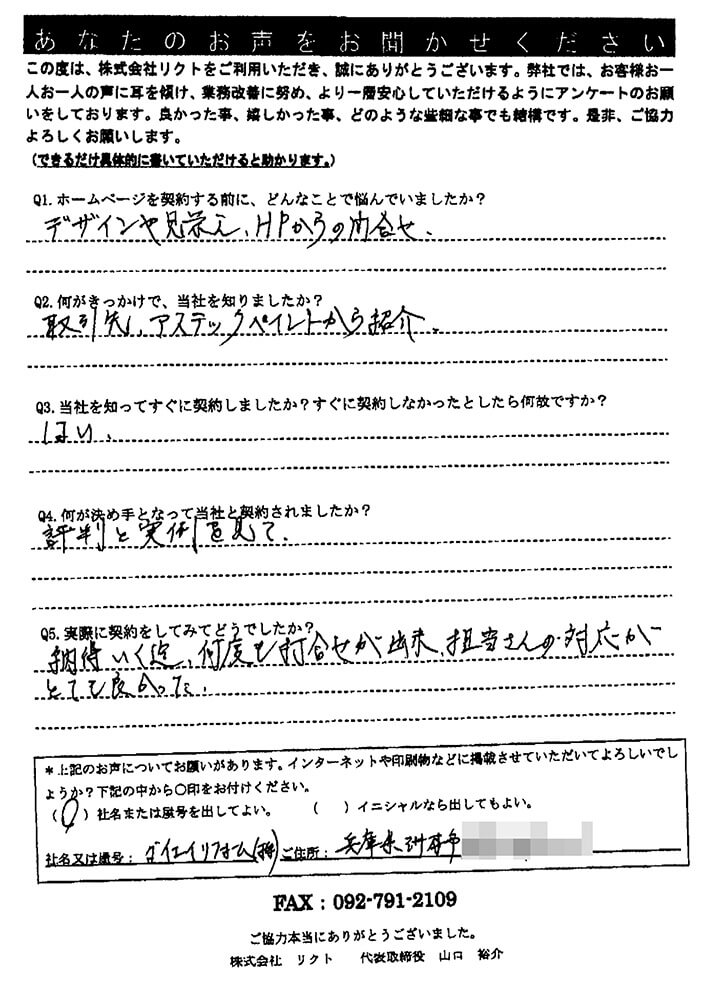 あなたのお声をお聞かせください
この度は、株式会社リクトをご利用いただき、誠にありがとうございます。弊社では、お客様お一
人お一人の声に耳を傾け、業務改善に努め、より一層安心していただけるようにアンケートのお願
いをしております。良かった事、嬉しかった事、どのような些細な事でも結構です。是非、ご協力
よろしくお願いします。
(できるだけ具体的に書いていただけると助かります。)
Q1. ホームページを契約する前に、どんなことで悩んでいましたか？
デザインや見栄え、HPからの問合せ、
Q2. 何がきっかけで、当社を知りましたか？
取引先、アステックペイントから紹介、
Q3. 当社を知ってすぐに契約しましたか？すぐに契約しなかったとしたら何故ですか？
はい、
Q4. 何が決め手となって当社と契約されましたか？
評判と実例を見て、
Q5. 実際に契約をしてみてどうでしたか？
納得いく迄、何度も打合せが出来、担当さんの対応が
とても良かった、
＊上記のお声についてお願いがあります。インターネットや印刷物などに掲載させていただいてよろしいでし
ょうか？下記の中から〇印をお付けください。
(〇) 社名または屋号を出してよい。 ( ) イニシャルなら出してもよい。
社名又は屋号： ダイエイリフォーム(株) ご住所： 兵庫県洲本市
FAX：092-791-2109
ご協力本当にありがとうございました。
株式会社 リクト 代表取締役 山口 裕介